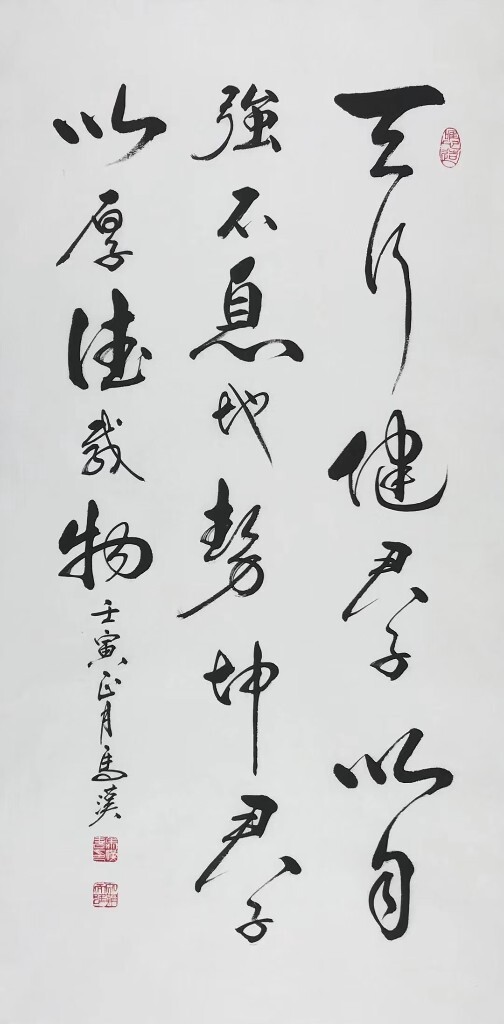 天行健君子以自
強不息地勢坤君子
以厚德載物
壬寅正月馬漢